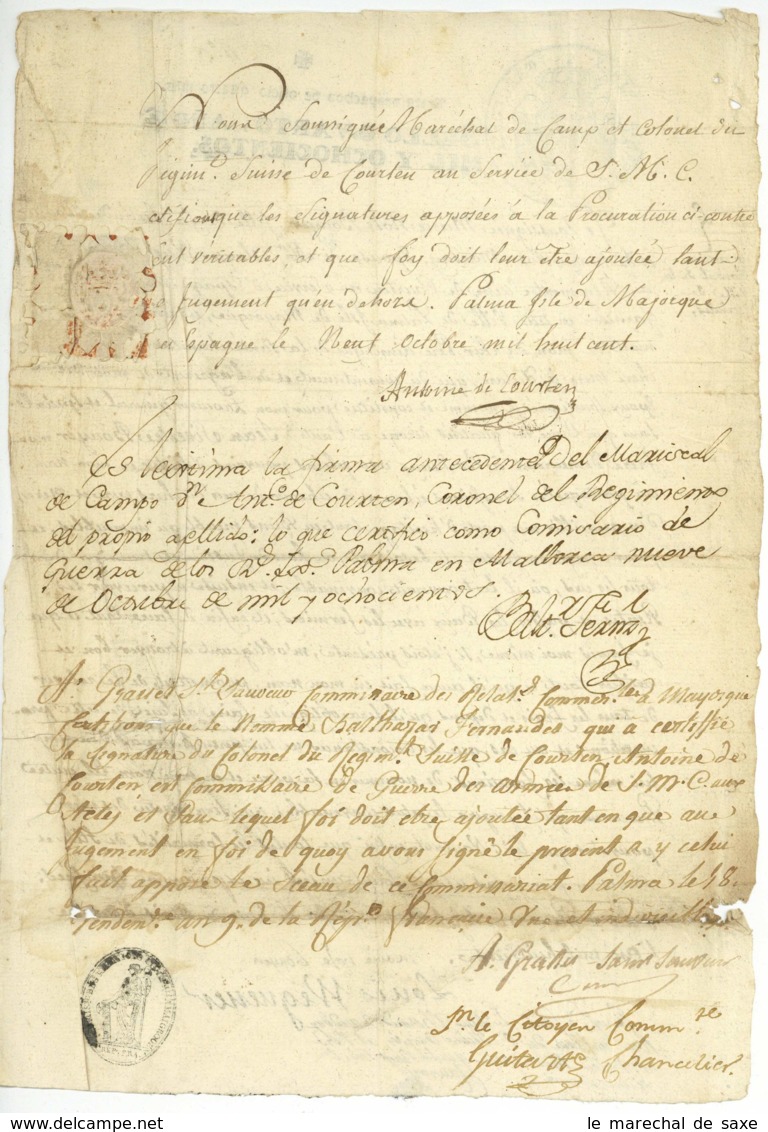 Nous Soussignée Maréchal de Camp et Colonel du
Régimt. Suisse de Courten au Service de S. M. C.
Certifions que les Signatures apposées à la Procuration ci-contre
sont véritables, et que foy doit leur être ajoutée tant
Jugement qu'en dehors. Palma Isle de Majorque
en Espagne le Neuf Octobre mil huit cent.
Antoine de Courten
Es lecitima la firma antecedente del Mariscal
de Campo Dn. Anto. de Courten, Coronel del Regimiento
del propio apellido: lo que certifico como Comisario de
Guerra de los Rs. Exs. Palma en Mallorca nueve
de Octubre de mil y ochocientos.
Balt. Fernz
A. Grasset St. Sauveur Commissaire des Relats. Commerles. à Mayorque
Certifions que le Nommé Balthazar Fernandes qui a certifié
la Signature du Colonel du Regimt. Suisse de Courten, Antoine de
Courten, est Commissaire de Guerre des armées de S. M. C. aux
et auquel foi doit etre ajoutée tant en que au
Jugement en foi de quoy avons signé le present a y celui
fait apposé le Sceau de ce Commissariat. Palma le 18
Vendemre. an 9. de la Répe. française Une et indivisible
A. Grasset Saint Sauveur
Pr. le Citoyen Commre.
Guitard Chancelier.
le marechal de saxe